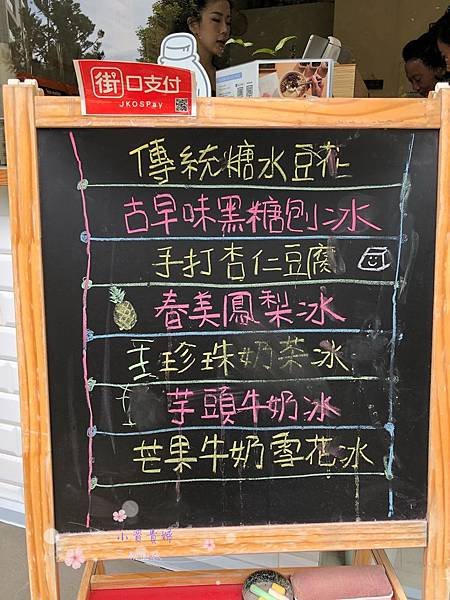 街口支付
JKOSPay
傳統糖水豆花
古早味黑糖刨冰
手打杏仁豆腐
春美鳳梨冰
珍珠奶茶冰
芋頭牛奶冰
芒果牛奶雪花冰